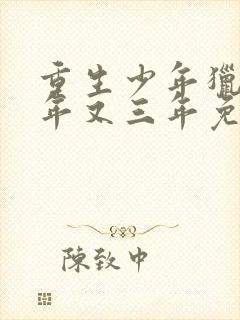 重生少年獵
年又三年免
陳致中